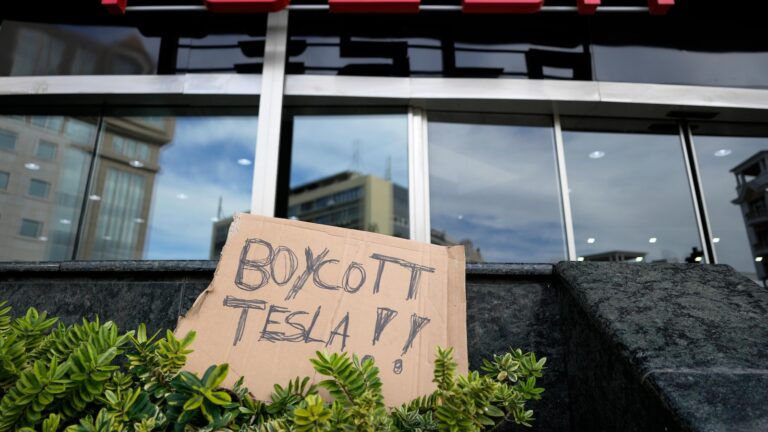 BOYCOTT
TESLA!!